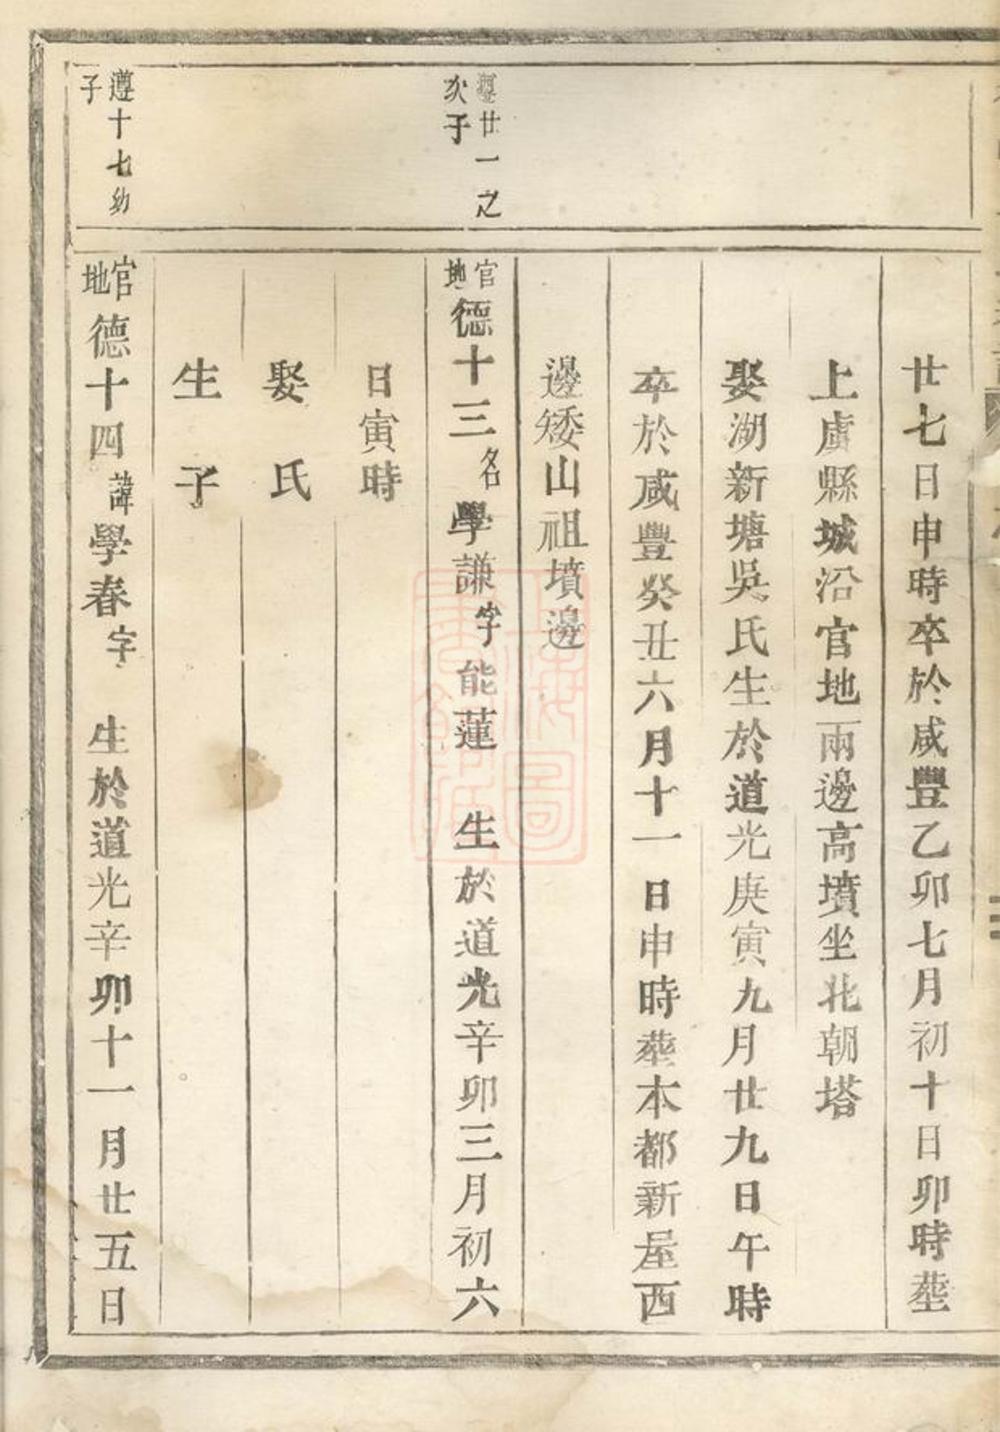 廿七日申時卒於咸豐乙卯七月初十日卯時塟
上虞縣城沿官地兩邊高墳坐北朝塔
娶湖新塘吳氏生於道光庚寅九月廿九日午時
卒於咸豐癸丑六月十一日申時塟本都新屋西
邊矮山祖墳邊
遵廿一之
次子
官地德十三名學謙字能蓮 生於道光辛卯三月初六
日寅時
娶 氏
生 子
遵十七幼
子
官地德十四諱學春字 生於道光辛卯十一月廿五日